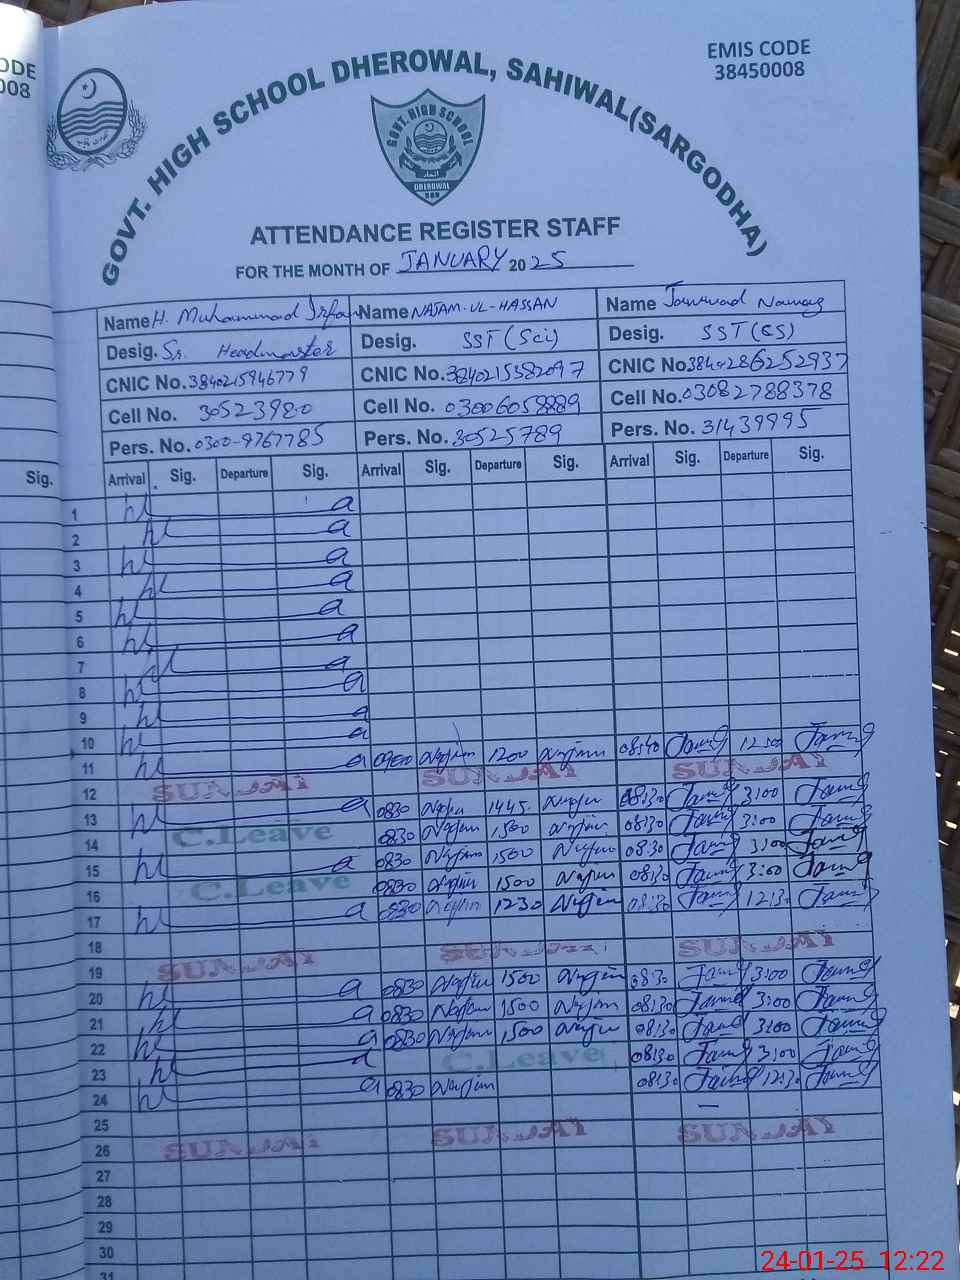 ODE
008
EMIS CODE
38450008
GOVT. HIGH SCHOOL DHEROWAL, SAHIWAL(SARGODHA)
GOVT. HIGH SCHOOL
DHEROWAL
ATTENDANCE REGISTER STAFF
FOR THE MONTH OF JANUARY 2025
Name H. Muhammad Irfan Name NAJAM-UL-HASSAN Name Jawwad Nawaz
Desig. Sr. Headmaster Desig. SST (Sci) Desig. SST (CS)
CNIC No. 3840215946779 CNIC No. CNIC No.
Cell No. Cell No. 03006058889 Cell No. 03082788378
Pers. No. 0300-9767785 Pers. No. 30525789 Pers. No. 31439995
Sig. Arrival Sig. Departure Sig. Arrival Sig. Departure Sig. Arrival Sig. Departure Sig.
1
2
3
4
5
6
7
8
9
10 0900 Najam 1200 Najam 0840 Jawad Jawad
11 SUNDAY SUNDAY SUNDAY
12 0830 Najam 1445 Najam 08:30 Jawad 3:00 Jawad
13 C.Leave 0830 Najam 1500 Najam 08:30 Jawad 3:00 Jawad
14 0830 Najam 1500 Najam 08:30 Jawad 3:00 Jawad
15 C.Leave 0830 Najam 1500 Najam 08:30 Jawad 3:00 Jawad
16 0830 Najam 1230 Najam 08:30 Jawad 12:30 Jawad
17
18 SUNDAY SUNDAY SUNDAY
19 0830 Najam 1500 Najam 08:30 Jawad 3:00 Jawad
20 0830 Najam 1500 Najam 08:30 Jawad 3:00 Jawad
21 0830 Najam 1500 Najam 08:30 Jawad 3:00 Jawad
22 C.Leave 08:30 Jawad 3:00 Jawad
23 0830 Najam 08:30 Jawad 12:30 Jawad
24
25 SUNDAY SUNDAY SUNDAY
26
27
28
29
30
31
24-01-25 12:22